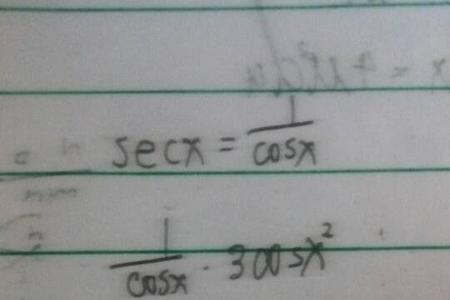 secx = 1/cosx
1/cosx · 3cosx²